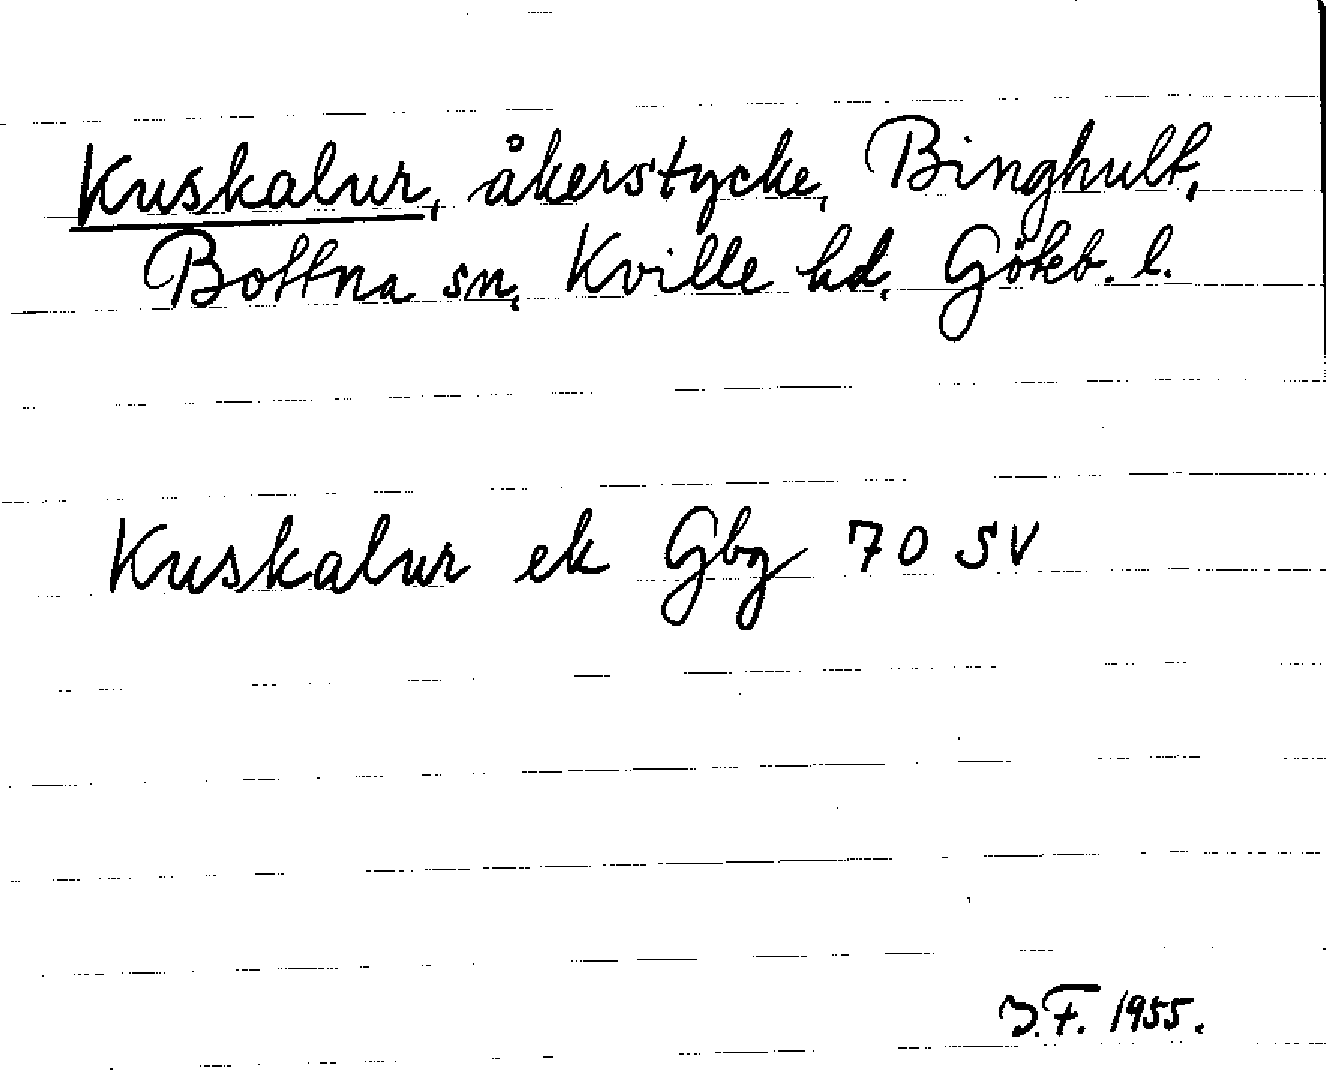 Kuskalur, åkerstycke, Binghult,
Bottna sn, Kville hd, Göteb. l.
Kuskalur ek Gbg 70 SV
J.F. 1955.